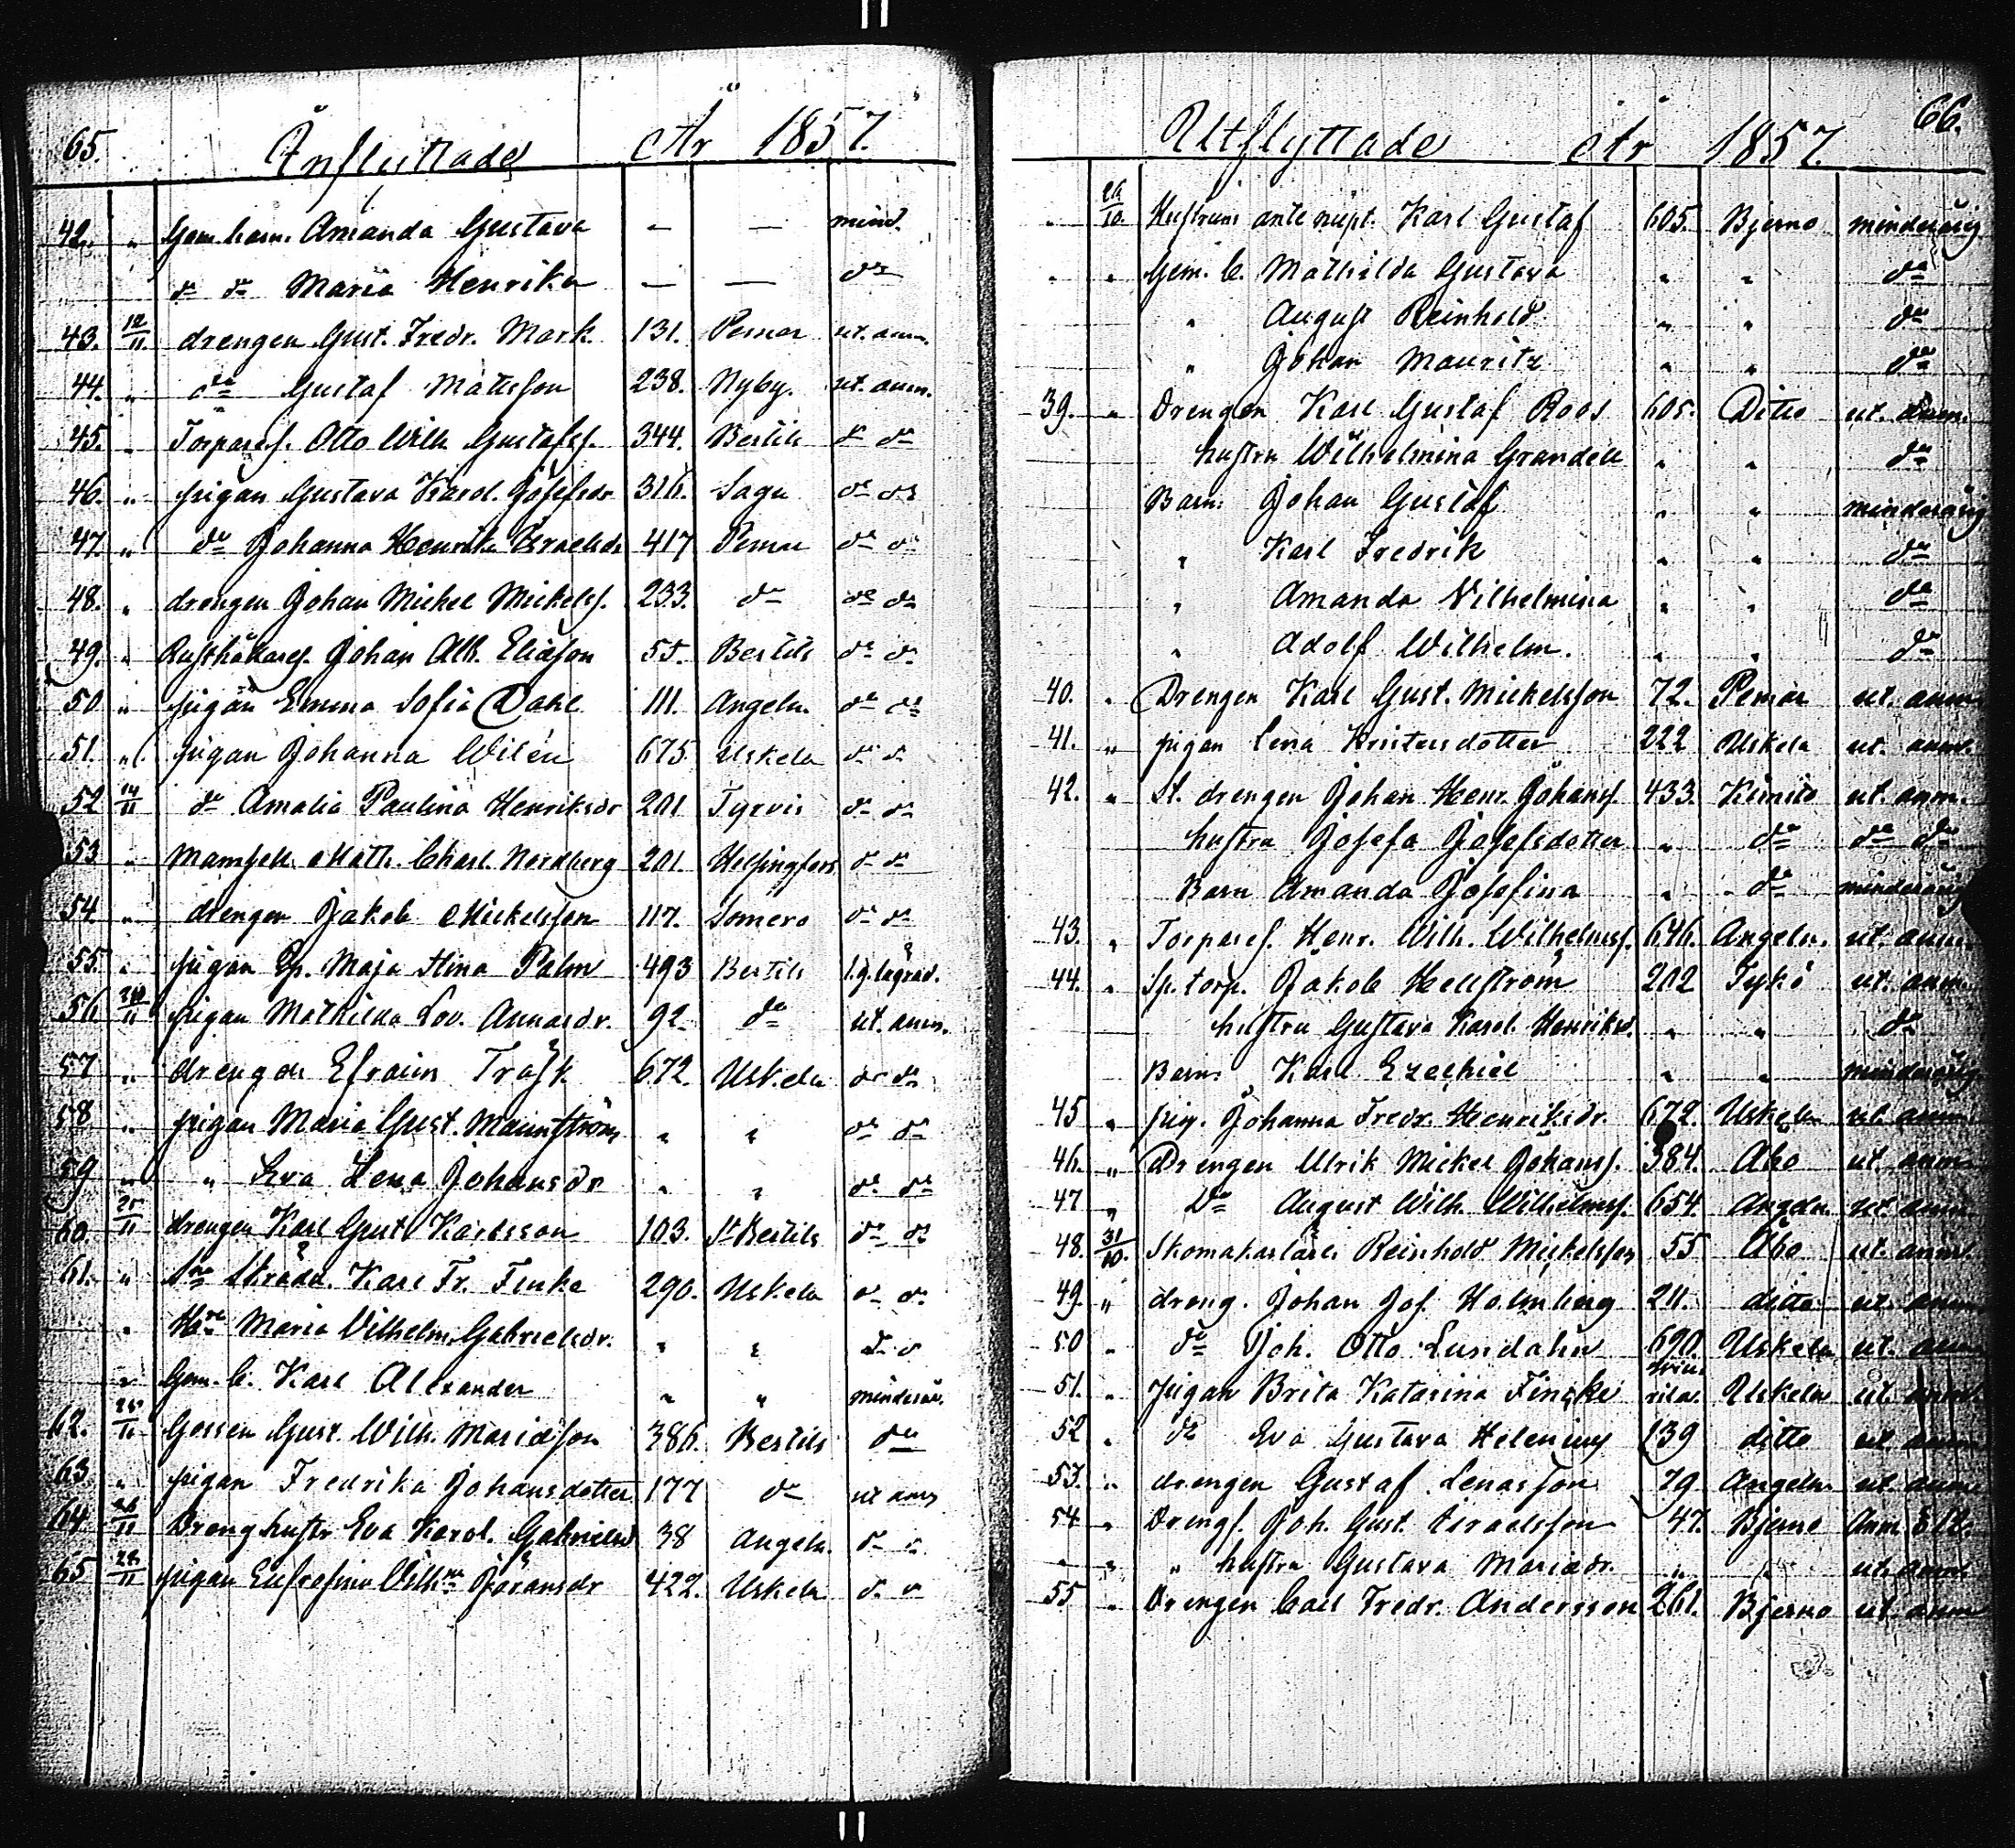 65. Inflyttade År 1857.
42. " Gem. barn. Amanda Gustava — — mind.
do do Maria Henrika — — do
43. 12/11. drengen Gust. Fredr. Mark. 131. Pemar ut. anm.
44. " do Gustaf Mattsson 238. Nyby. ut. anm.
45. " Torpares. Otto Wilh. Gustafss. 344. Bertils do do
46. " pigan Gustava Karol. Josefsdr 316. Sagu do do
47. " do Johanna Henrika Israelsdr 417 Pemar do do
48. " drengen Johan Mickel Mickelss. 233. do do do
49. " Rusthållares. Johan Alb. Eliasson 55. Bertils do do
50 " pigan Emma Sofia Dahl 111. Angeln. do do
51. " pigan Johanna Wilén 675. Uskela do do
52 14/11 do Amalia Paulina Henriksdr 201 Tyrvis do do
53 " Mamsell Math. Charl. Nordberg 201. Helsingfors do do
54. " drengen Jakob Mickelsson 117. Somero do do
55. " pigan Maja Stina Palm 493 Bertils
56 " pigan Mathilda Lov. Annasdr. 92. do ut. anm.
57 " drengen Efraim Träsk 672. Uskela do do
58 " pigan Maria Gust. Mannström " " do do
59 " " Eva Lena Johansdr " " do do
60. 25/11 drengen Karl Gust. Karlsson 103. St Bertils do do
61. " Karl Fr. Finke 290. Uskela do do
" Maria Vilhelm. Gabrielsdr. " " do do
" Gem. b. Karl Alexander " " minderår.
62. Gossen Gust. Wilh. Mariasson 386. Bertils do
63 " pigan Fredrika Johansdotter 177 do ut anm
64 26/11 Dreng hustr Eva Karol. Gabrielsd 38 Angeln. do do
65 28/11 pigan Eufrosina Vilhna Göransdr 422. Uskela do do
Utflyttade År 1857. 66.
" 26/10. Hustruns ante nupt. Karl Gustaf 605. Bjerno minderårig
" " Gem. b. Mathilda Gustava " " do
" August Reinhold " " do
" Johan Mauritz " " do
39. " Drengen Karl Gustaf Roos 605. Ditto ut. anm.
hustru Wilhelmina Grandell " " do
Barn: Johan Gustaf " " minderårig
" Karl Fredrik " " do
" Amanda Vilhelmina " " do
" Adolf Wilhelm. " " do
40. " Drengen Karl Gust. Mickelsson 72. Pemar ut. anm.
41. " pigan Lena Kristersdotter 222 Uskela ut. anm.
42. " St. drengen Johan Henr. Johanss. 433. Kimito ut. anm.
hustru Josefa Josefsdotter " do do do
Barn Amanda Josefina " do minderårig
43. " Torpares. Henr. Wilh. Wilhelmss. 646. Angeln. ut. anm.
44. " Sp. torp. Jakob Hellström 202 Tykö ut. anm.
hustru Gustava Karol. Henriksd. " " do
Barn: Karl Ezechiel " " minderårig
45 " pig. Johanna Fredr. Henriksdr. 672. Uskela ut. anm.
46. " Drengen Ulrik Mickel Johanss. 384. Åbo ut. anm.
47 " Do August Wilh. Wilhelmss. 654. Angeln ut. anm.
48. 31/10. Skomakarlärl. Reinhold Mickelsson 55 Åbo ut. anm.
49. " dreng. Johan Jos. Holmberg 211. ditto ut. anm.
50 " do Joh. Otto Lundahn 690. Uskela ut. anm.
51. " pigan Brita Katarina Fincke Uskela ut. anm.
52 " do Eva Gustava Helenius 139 ditto ut anm
53. " drengen Gustaf Lenasson 79 Angeln. ut. anm.
54 " Drengs. Joh. Gust. Israelsson 47. Bjerno Anm. § 12.
" " " hustru Gustava Mariadr. " " ut. anm.
55 " Drengen Carl Fredr. Andersson 261. Bjerno ut. anm